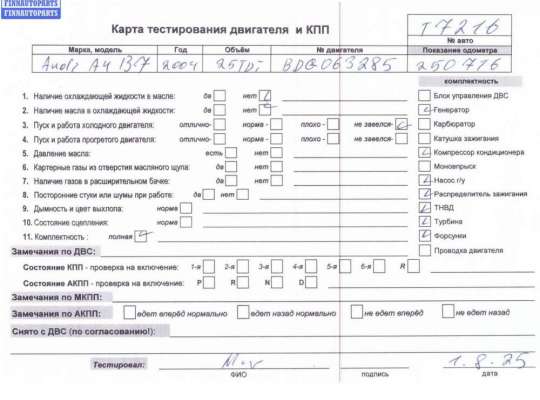 FINNAUTOPARTS
FINNAUTOPARTS
Карта тестирования двигателя и КПП
T7216
№ авто
Марка, модель Год Объём № двигателя Показание одометра
Audi A4 B7 2004 25TDi BDG063285 250716
комплектность
1. Наличие охлаждающей жидкости в масле: да нет
Блок управления ДВС
2. Наличие масла в охлаждающей жидкости: да нет
Генератор
3. Пуск и работа холодного двигателя: отлично- норма - плохо - не завелся-
Карбюратор
4. Пуск и работа прогретого двигателя: отлично- норма - плохо - не завелся-
Катушка зажигания
5. Давление масла: есть нет
Компрессор кондиционера
6. Картерные газы из отверстия масляного щупа: да нет
Моновпрыск
7. Наличие газов в расширительном бачке: да нет
Насос г/у
8. Посторонние стуки или шумы при работе: да нет
Распределитель зажигания
9. Дымность и цвет выхлопа: норма
ТНВД
10. Состояние сцепления: норма
Турбина
11. Комплектность : полная
Форсунки
Замечания по ДВС:
Проводка двигателя
Состояние КПП - проверка на включение: 1-я 2-я 3-я 4-я 5-я 6-я R
Состояние АКПП - проверка на включение: P R N D
Замечания по МКПП:
Замечания по АКПП: едет вперёд нормально едет назад нормально не едет вперёд не едет назад
Снято с ДВС (по согласованию!):
Тестировал: 1.8.25
ФИО подпись дата